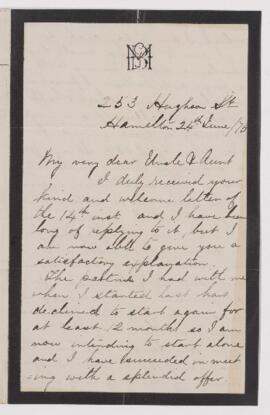 253 Hughson St
Hamilton 24th June /76
My very dear Uncle & Aunt
I duly received your
kind and welcome letter of
the 14th inst. and I have been
long of replying to it, but I
am now able to give you a
satisfactory explanation.
The partner I had with me
when I started last had
declined to start again for
at least 12 months so I am
now intending to start alone
and I have succeeded in meet
ing with a splendid offer